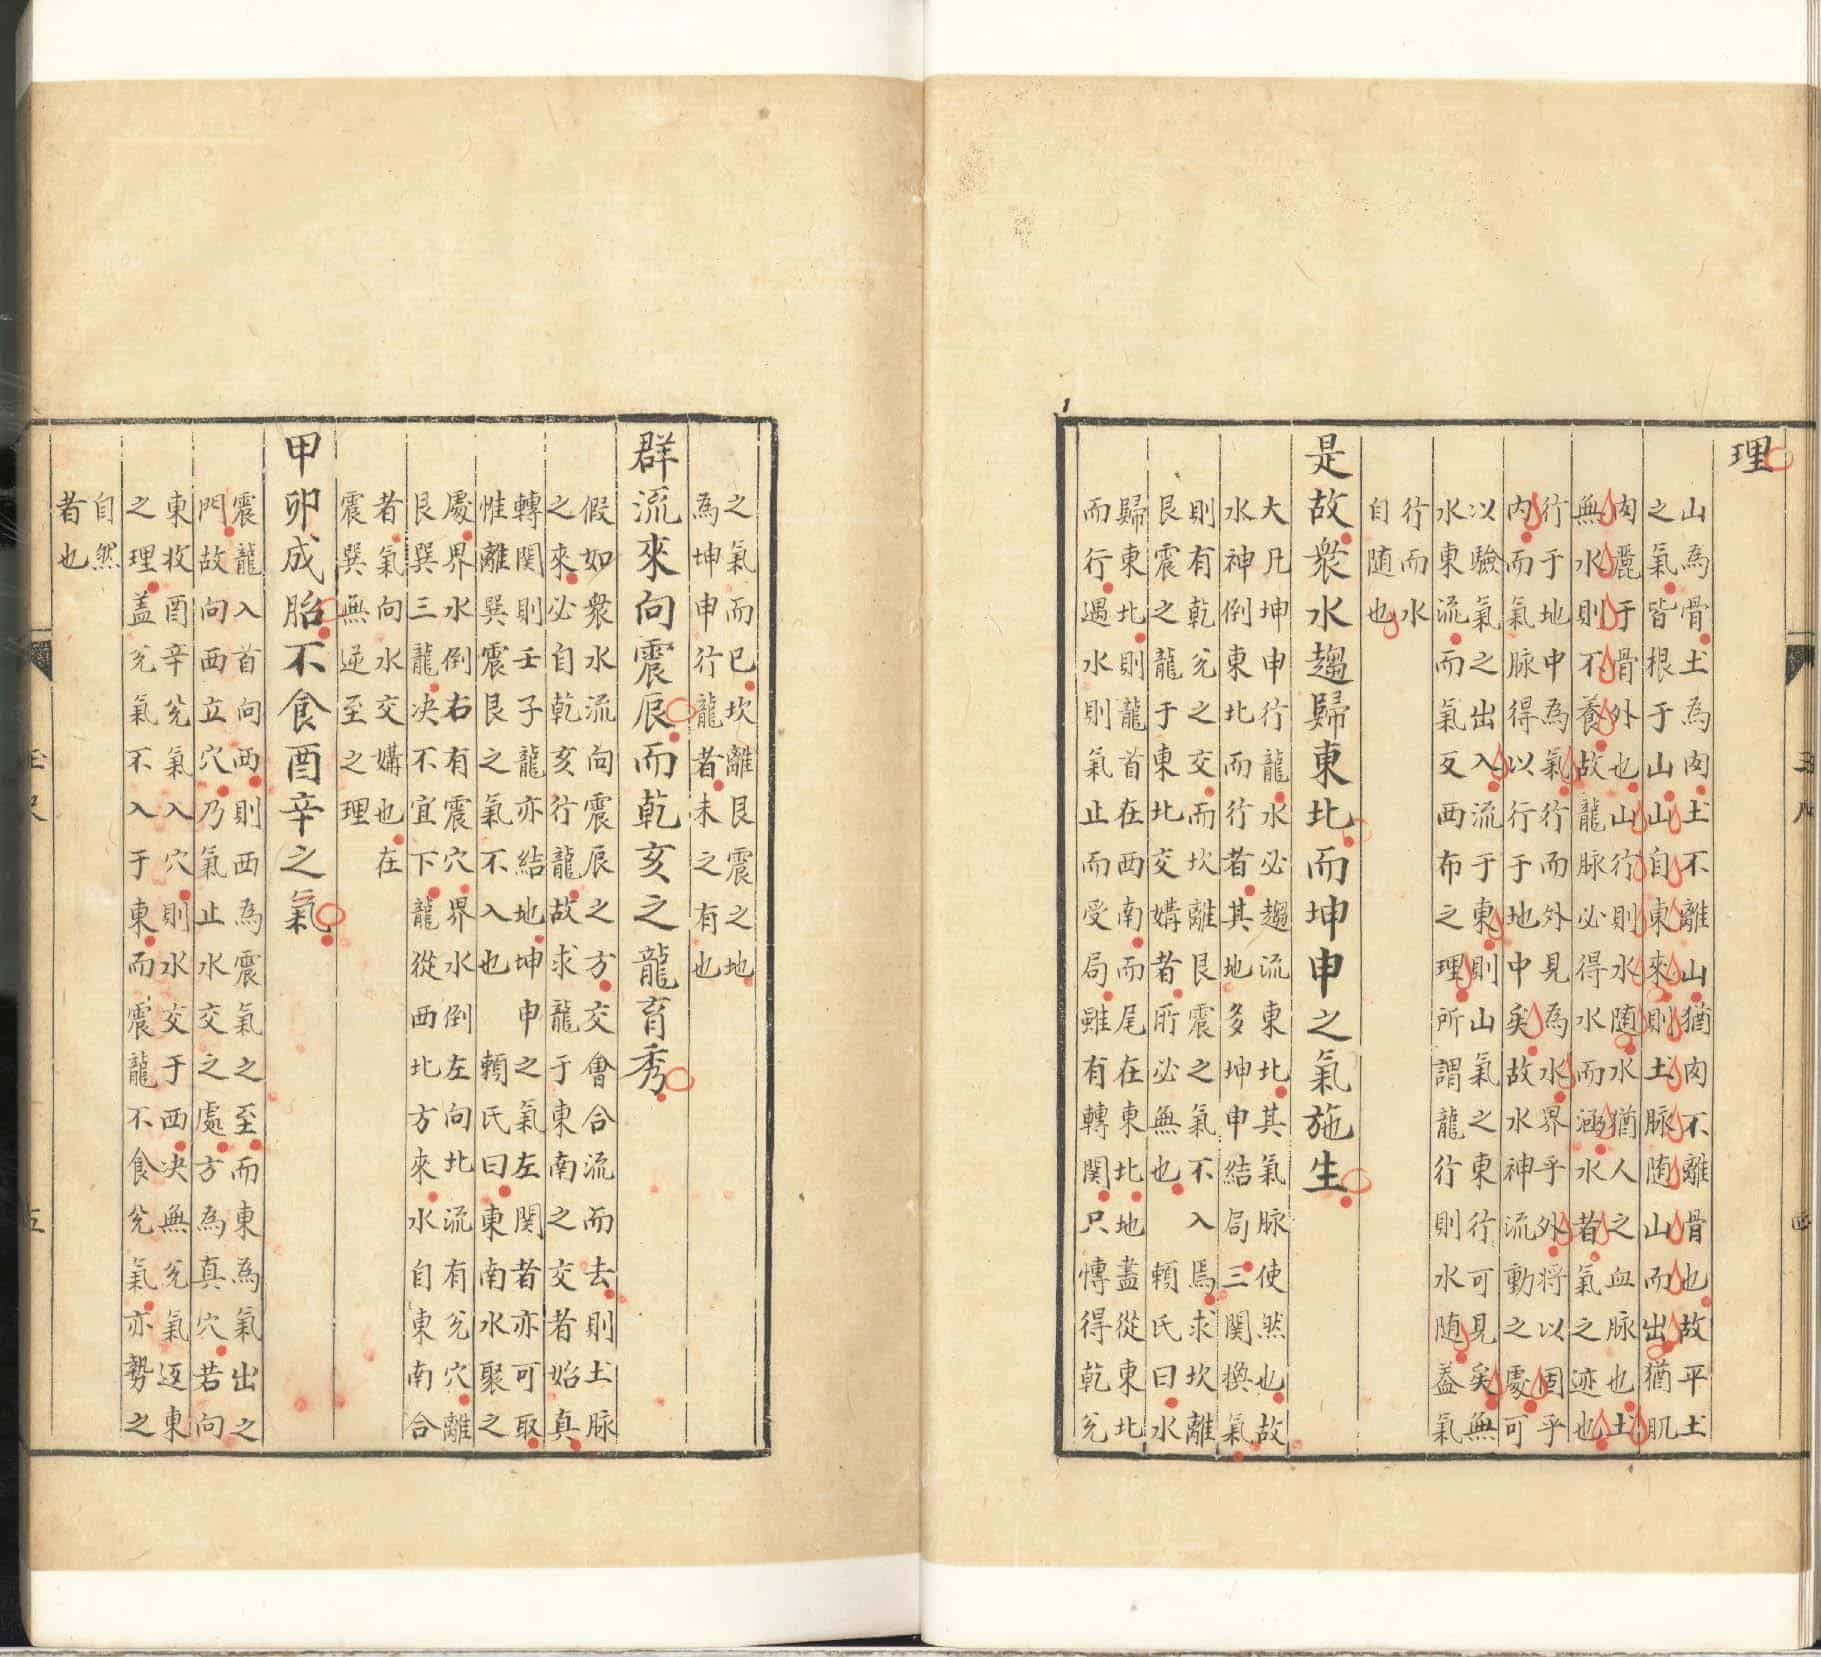 理
山為骨土為肉土不離山猶肉不離骨也故平土
之氣皆根于山山自東來則土脉随山而出猶肌
肉麗于骨外也山行則水随水猶人之血脉也土
無水則不養故龍脉必得水而涵水者氣之迹也
行于地中為氣行而外見為水界乎外將以固乎
内而氣脉得以行于地中矣故水神流動之處可
以驗氣之出入流于東則山氣之東行可見矣無
水東流而氣反西布之理所謂龍行則水随蓋氣
行而水
自随也
是故衆水趨歸東北而坤申之氣施生
大凡坤申行龍水必趨流東北其氣脉使然也故
水神倒東北而行者其地多坤申結局三関換氣
則有乾兊之交而坎離艮震之氣不入焉求坎離
艮震之龍于東北交媾者所必無也 頼氏曰水
歸東北則龍首在西南而尾在東北地盡從東北
而行遇水則氣止而受局雖有轉関只慱得乾兊
之氣而已坎離艮震之地
為坤申行龍者未之有也
群流來向震辰而乾亥之龍育秀
假如衆水流向震辰之方交會合流而去則土脉
之來必自乾亥行龍故求龍于東南之交者始真
轉関則壬子龍亦結地坤申之氣左関者亦可取
惟離巽震艮之氣不入也 頼氏曰東南水聚之
處界水倒右有震穴界水倒左向北流有兊穴離
艮巽三龍决不宜下龍從西北方來水自東南合
者氣向水交媾也在
震巽無逆至之理
甲卯成胎不食酉辛之氣
震龍入首向西則西為震氣之至而東為氣出之
門故向西立穴乃氣止水交之處方為真穴若向
東收酉辛兊氣入穴則水交于西决無兊氣迓東
之理蓋兊氣不入于東而震龍不食兊氣亦勢之
自然
者也
五